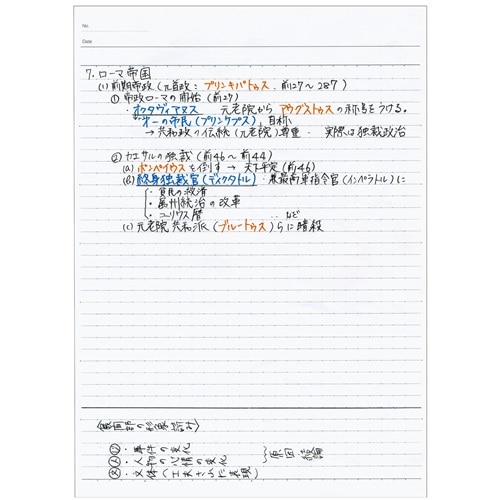 No.
Date
7. ローマ帝国
(1) 前期帝政(元首政: プリンキパトゥス. 前27〜287)
① 帝政ローマの開始(前27)
・オクタヴィアヌス 元老院から アウグストゥス の称号をうける。
"第一の市民(プリンケプス)"自称
→ 共和政の伝統(元老院)尊重. 実際は独裁政治
② カエサルの独裁(前46〜前44)
(a) ポンペイウス を倒す → 天下平定(前46)
(b) 終身独裁官(ディクタトル)・兼最高軍指令官(インペラトル)に
・貧民の救済
・属州統治の改革
・ユリウス暦 ‥など
(c) 元老院共和派(ブルートゥス)らに暗殺
・事件の変化
・人物の心情の変化
・文体(工夫された表現)
原因 結論